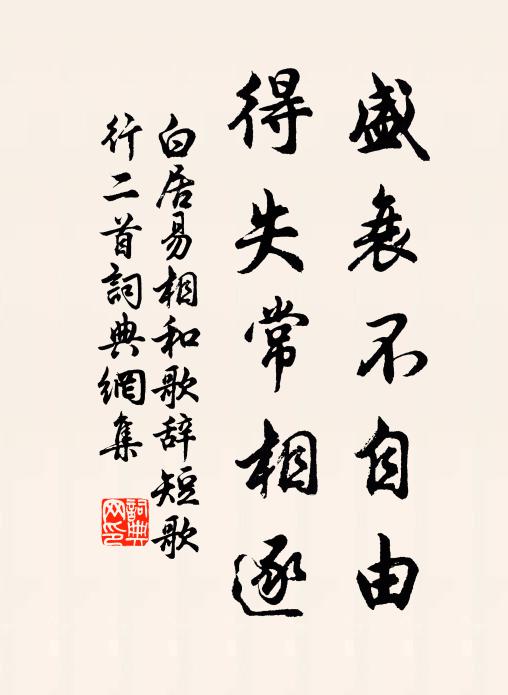 盛衰不自由
得失常相逐
白居易相和歌辞短歌
行二首詞典網集
詞典
网印